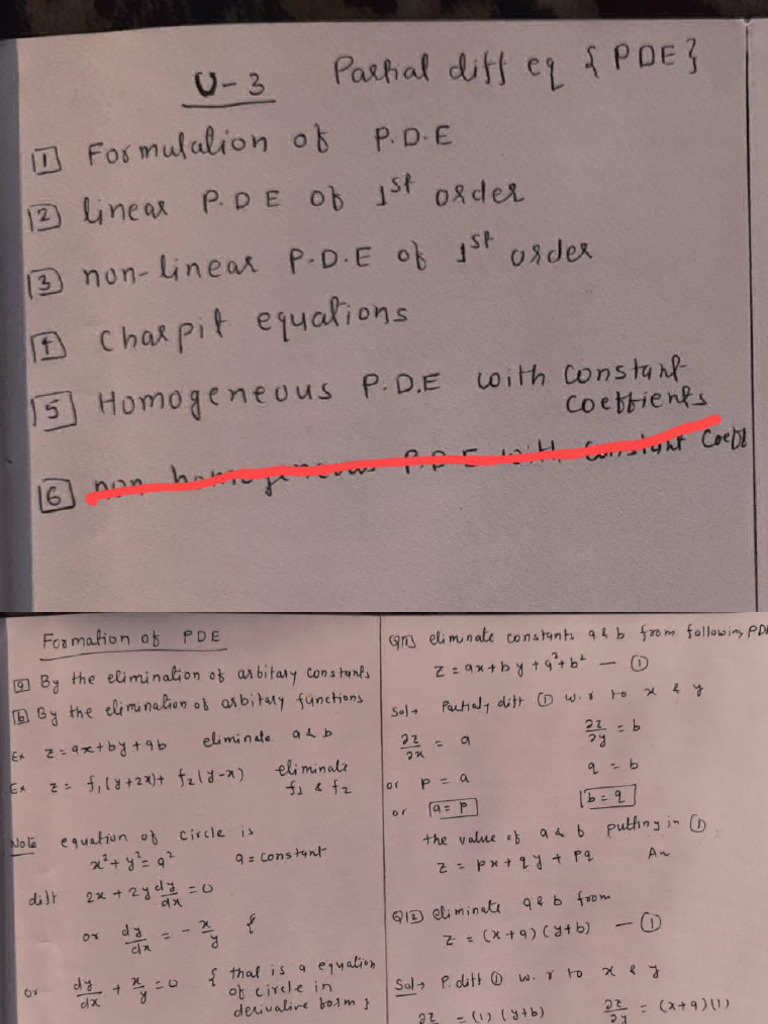 U-3 Partial diff eq {PDE}
1 Formulation of P.D.E
2 linear P.D E of 1st order
3 non-linear P.D.E of 1st order
4 Charpit equations
5 Homogeneous P.D.E with constant
coeffients
6 non homogeneous P.D.E with constant Coeff
Formation of PDE
a By the elimination of arbitary constants
b By the elimination of arbitary functions
Ex z = ax+by+ab eliminate a & b
Ex z = f₁(y+2x)+ f₂(y-x) eliminate
f₁ & f₂
Note equation of circle is
x²+y²=a² a = constant
diff 2x + 2y dy/dx = 0
or dy/dx = - x/y {
or dy/dx + x/y = 0 { that is a equation
of circle in
derivative form }
Q11) eliminate constants a & b from following PDE
z = ax+by+a²+b² — ①
Sol→ Partialy diff ① w.r to x & y
∂z/∂x = a ∂z/∂y = b
or p = a q = b
or a = p b = q
the value of a & b putting in ①
z = px+qy + pq An
Q12) eliminate a & b from
z = (x+a)(y+b) — ①
Sol→ P.diff ① w.r to x & y
∂z = (1) (y+b) ∂z/∂y = (x+a)(1)